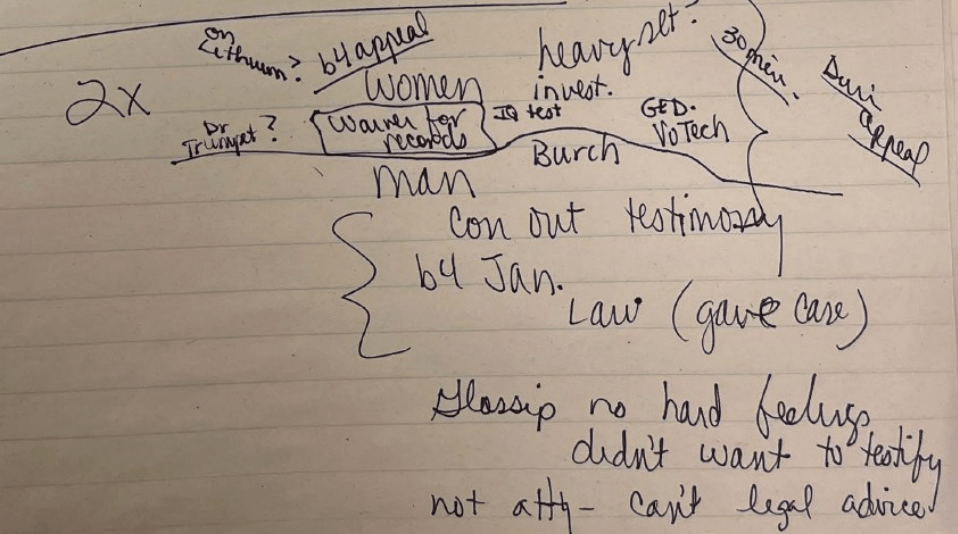 on
Lithium? b4 appeal heavy set? 30 min.
2x women invest. Dui appeal
Dr Trumpet? waiver for records IQ test GED. VoTech
man Burch
Con out testimony
b4 Jan.
Law (gave case)
Glossip no hard feelings
didn't want to testify
not atty - can't legal advice